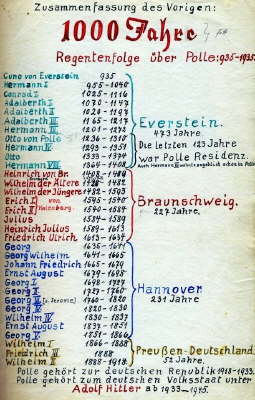 Zusammenfassung des Vorigen:
1000 Jahre
Regentenfolge über Polle: 935-1935.
Cuno von Everstein 935
Hermann I 955-1040
Conrad I 1025-1116
Adalbert I 1070-1147
Adalbert II 1120-1197
Adalbert III 1165-1217
Hermann III 1201-1272
Otto von Polle 1236-1310
Hermann IV 1293-1351
Otto 1333-1374
Hermann VIII 1364-1408
Everstein.
473 Jahre.
Die letzten 123 Jahre
war Polle Residenz.
Heinrich von Br. 1408-
Wilhelm der Ältere
Wilhelm der Jüngere 1482-1503
Erich I von 1495-1540
Erich II Kalenberg. 1540-1584
Julius 1584-1589
Heinrich Julius 1589-1613
Friedrich Ulrich 1613-1634
Braunschweig.
227 Jahre.
Georg 1636-1641
Georg Wilhelm 1641-1665
Johann Friedrich 1665-1679
Ernst August 1679-1698
Georg I 1698-1727
Georg II 1727-1760
Georg III (u. Jerome) 1760-1820
Georg IV 1820-1830
Wilhelm IV 1830-1837
Ernst August 1837-1851
Georg V 1851-1866
Hannover
231 Jahre
Wilhelm I 1866-1888
Friedrich III 1888
Wilhelm II 1888-1918
Preußen-Deutschland
52 Jahre.
Polle gehört zur deutschen Republik 1918-1933.
Polle gehört zum deutschen Volksstaat unter
Adolf Hitler ab 1933-1945.